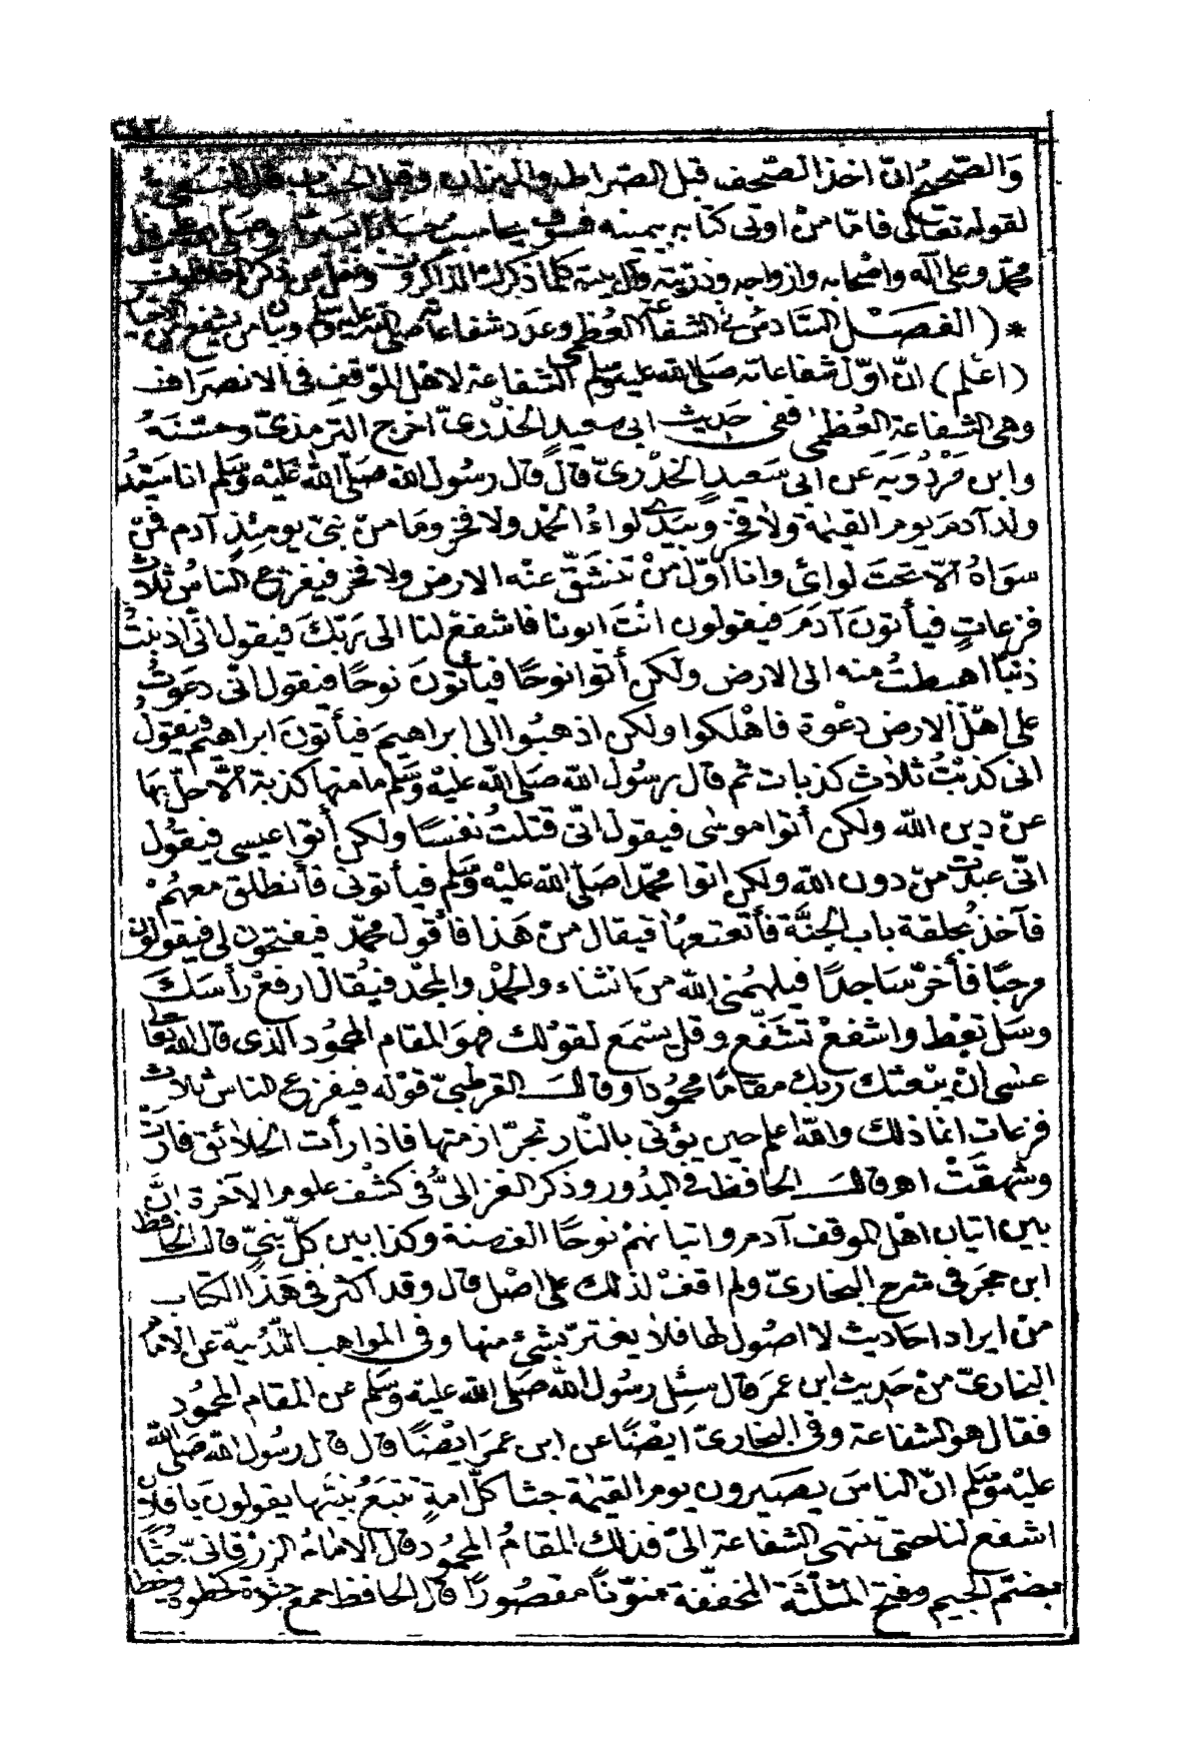 ٢٤٣
وَالصّحيحُ انّ اخذ الصّحف قبل الصّراط والميزان وقبل الحساب
لقوله تعالى فامّا منْ اوتى كتابه بيمينه فسَوْف يحاسبُ حسَابًا يَسيرًا وصلى الله على
محمّد وعلى آله واصْحابه وازواجه وذرّيّته وآل بيته كلما ذكرك الذاكرون وغفل عن ذكره الغافلون
* (الفصَــْـل السّادسُ فى الشفاعَة العُظمى وعدَد شفاعاته صَلى الله عليه وسَلم وبيان من يشفع من الاخيار
(اعْلم) انّ اوّل شفاعاته صَلى الله عليه وسَلم الشفاعَة لاهْل الموْقفِ فى الانصرَاف
وهى الشفاعَة العُظمىٰ ففى حَديث ابى سَعيد الخدْرىّ اخرج الترمذىّ وحسّنَهُ
وابن مَرْدُوَيَه عَن ابى سَعيدٍ الخدْرىّ قالَ قال رسُول الله صَلّى اللهُ عَليْه وَسَلم انا سَيّدُ
ولد آدمَ يوم القيٰمة ولاٰ فخر وبيَدى لواءُ الحمْد ولا فخر ومَا منْ نبىّ يومئِذٍ آدم فمَنْ
سوَاهُ الّا تحتَ لوائى وانا اوّل مَنْ تنشَقّ عنْه الارض ولا فخر فيفزع الناسُ ثلاث
فزعاتٍ فيأتونَ آدَمَ فيقولون انْتَ ابونا فاشفعْ لنا الى رَبّكَ فيقول انّى اذنبْتُ
ذنبًا اهبطتُ منه الى الارض ولكن أتوا نوحًا فيأتونَ نوحًا فيقول انّى دعَوْتُ
على اهْل الارض دعْوة فاهْلكوا ولكن اذهبُوا الى ابراهيمَ فيأتونَ ابراهيم فيقول
انى كذبْتُ ثلاث كذبات ثم قال رسُول الله صَلى الله عليْه وَسَلم ما منها كذبة الّا حلّ بها
عنْ دين الله ولكن أتوا موسَى فيقول انّى قتلتُ نفسًا ولكن أتوا عيسى فيقُول
انّى عبدْت منْ دون الله ولكن اتوا محمّدًا صَلى الله عليْه وسَلم فيأتونى فأنطلق معهُمْ
فآخذ بحلقة باب الجنّة فأقعقعهَا فيقال منْ هَذا فأقول محمّد فيفتحون لى فيقولون
مرحبًا فأخرّ سَاجدًا فيلهمُنى الله من الثناء والحمْد والمجْد فيُقال ارفعْ رأسَكَ
وسَلْ تعْط واشفعْ تشَفّع وقل يسْمَع لقوْلك فهوَ المقام المحمُود الّذى قال الله تعالى
عسَى انْ يبْعثك ربّك مقامًا محمُودًا وقالـــــ القرطبىّ قوْله فيفزع الناسُ ثلاث
فزعات انما ذلك والله اعلم حين يؤتى بالنّار تجرّ ازمتها فاذا رأت الخلائق فارَتْ
وشهقتْ اهـ وقالــــ الحافظ فى البدُور وذكر الغزالىُّ فى كشْف علوم الآخرة انَّ
بين اتيان اهْل الموقف آدم واتيانهمْ نوحًا الف سنة وكذا بين كلّ نبىّ قال الحافظ
ابن حجَر فى شرح البخارىّ ولم اقفْ لذلك على اصْل قال وقد اكثر فى هَذا الكتاب
منْ ايراد احَاديث لا اصُول لها فلا يغترّ بشئ منها وفى المواهب اللّدُنيّة عن الامام
البخارىّ منْ حَديث ابن عمَر قال سئِل رسُول الله صَلى الله عليه وسَلم عن المقام المحمُود
فقال هو الشفاعَة وفى البخارىّ ايضًا عن ابن عمَر ايضًا قال قال رسُول الله صَلى الله
عليْه وسَلم انّ الناسَ يصيرون يوم القيٰمة جثا كلّ امةٍ تتبَعُ نبيّها يقولونَ يا فلان
اشفع لنا حتى تنتهى الشفاعة الىّ فذلك المقامُ المحمُود قال الامامُ الزرْقانىّ جُثًا
بضمّ الجيم وفتح المثلّثة المخففة منوّنًا مقصُورًا قال الحافظ جمع جثوة كخطوة وخطا